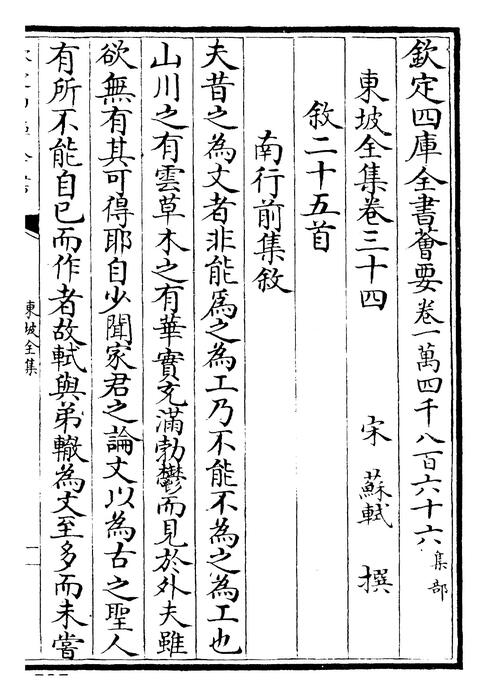 欽定四庫全書薈要卷一萬四千八百六十六集部
東坡全集卷三十四 宋 蘇軾 撰
敘二十五首
南行前集敘
夫昔之為文者非能為之為工乃不能不為之為工也
山川之有雲草木之有華實充滿勃鬱而見於外夫雖
欲無有其可得耶自少聞家君之論文以為古之聖人
有所不能自已而作者故軾與弟轍為文至多而未嘗
東坡全集